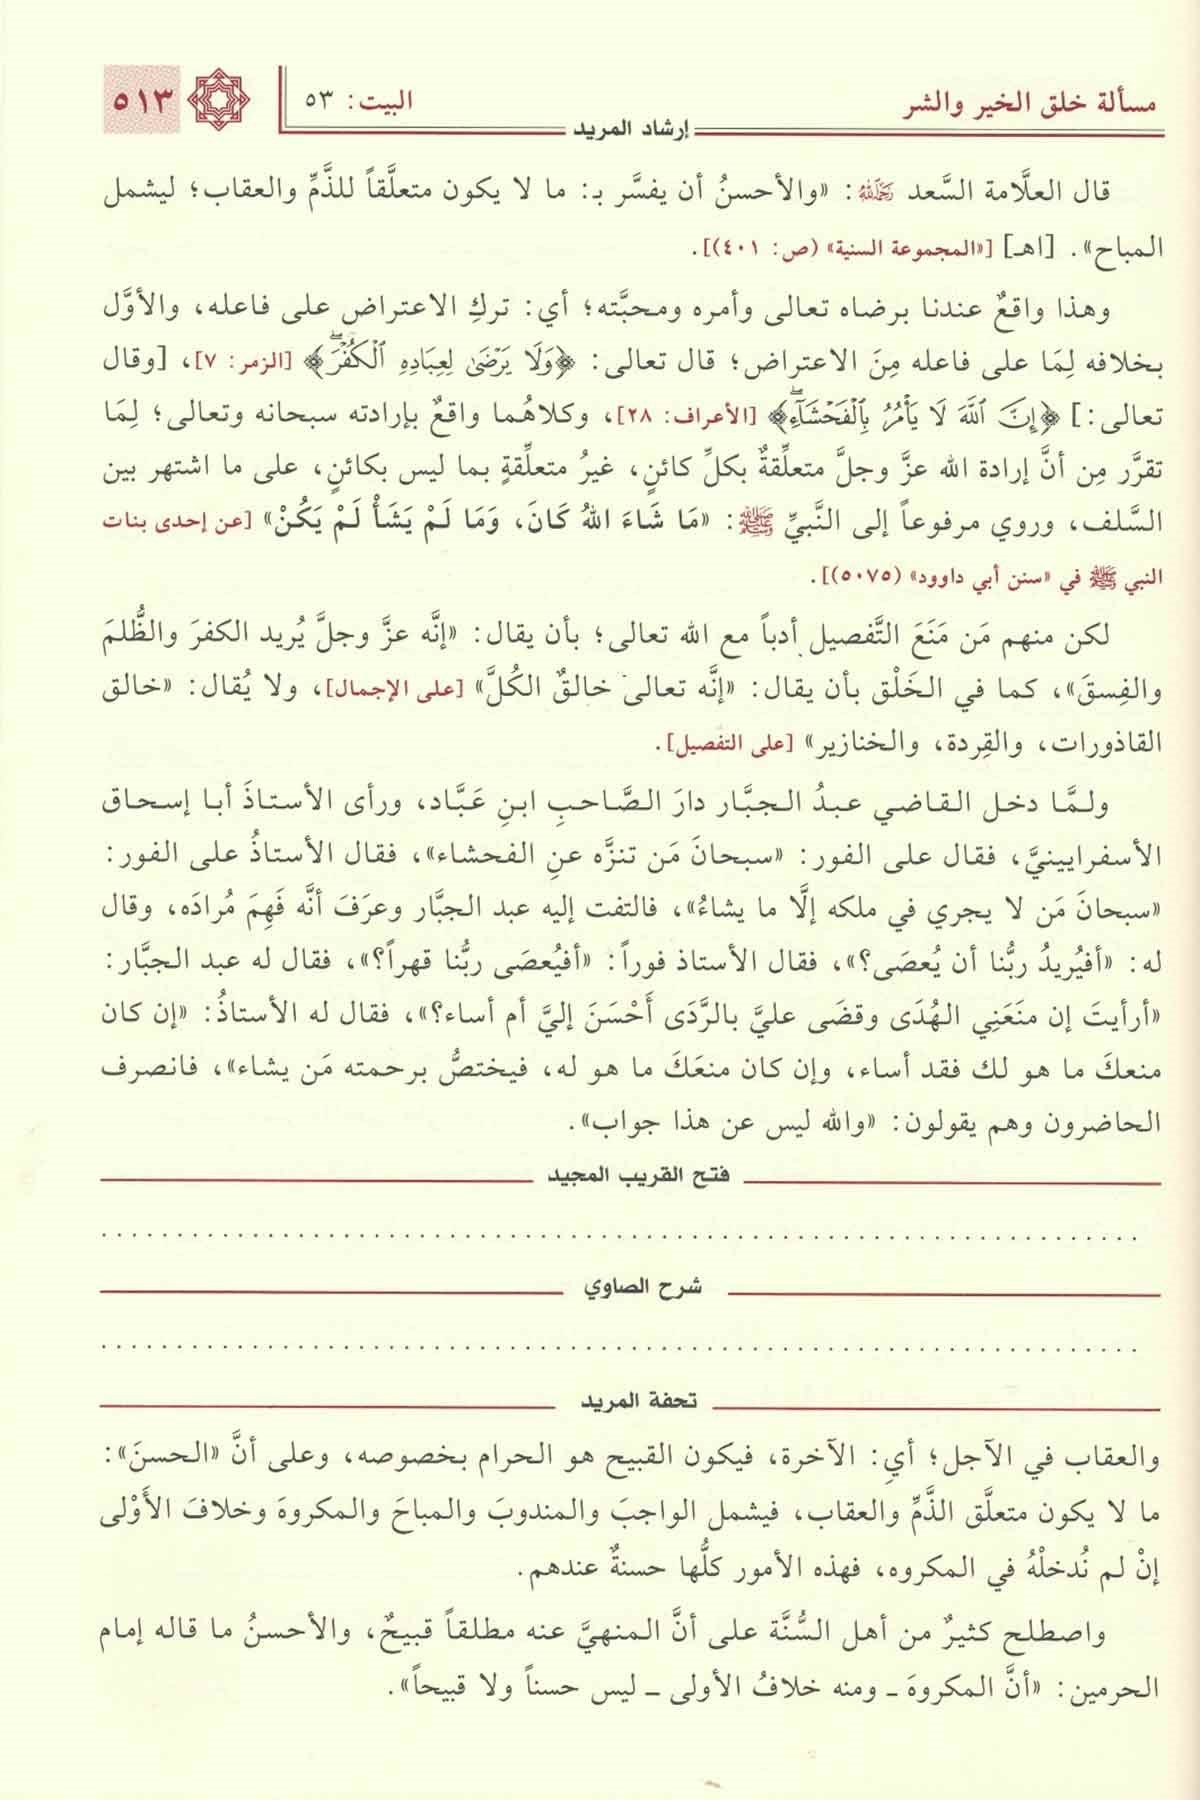 مسألة خلق الخير والشر
البيت: ٥٣
٥١٣
إرشاد المريد
قال العلَّامة السَّعد رَحِمَهُ اللهُ: «والأحسنُ أن يفسَّر بـ: ما لا يكون متعلَّقاً للذَّمِّ والعقاب؛ ليشمل
المباح». [اهـ] [«المجموعة السنية» (ص: ٤٠١)].
وهذا واقعٌ عندنا برضاه تعالى وأمره ومحبَّته؛ أي: تركِ الاعتراض على فاعله، والأوَّل
بخلافه لِمَا على فاعله مِنَ الاعتراض؛ قال تعالى: ﴿وَلَا يَرْضَىٰ لِعِبَادِهِ ٱلْكُفْرَ﴾ [الزمر: ٧]، [وقال
تعالى:] ﴿إِنَّ ٱللَّهَ لَا يَأْمُرُ بِٱلْفَحْشَآءِ﴾ [الأعراف: ٢٨]، وكلاهُما واقعٌ بإرادته سبحانه وتعالى؛ لِمَا
تقرَّر مِن أنَّ إرادة الله عزَّ وجلَّ متعلِّقةٌ بكلِّ كائنٍ، غيرُ متعلِّقةٍ بما ليس بكائنٍ، على ما اشتهر بين
السَّلف، وروي مرفوعاً إلى النَّبيِّ ﷺ: «مَا شَاءَ اللهُ كَانَ، وَمَا لَمْ يَشَأْ لَمْ يَكُنْ» [عن إحدى بنات
النبي ﷺ في «سنن أبي داوود» (٥٠٧٥)].
لكن منهم مَن مَنَعَ التَّفصيل أدباً مع الله تعالى؛ بأن يقال: «إنَّه عزَّ وجلَّ يُريد الكفرَ والظُّلمَ
والفِسقَ»، كما في الخَلْق بأن يقال: «إنَّه تعالى خالقٌ الكُلَّ» [على الإجمال]، ولا يُقال: «خالق
القاذورات، والقِردة، والخنازير» [على التفصيل].
ولمَّا دخل القاضي عبدُ الجبَّار دارَ الصَّاحبِ ابنِ عَبَّاد، ورأى الأستاذَ أبا إسحاق
الأسفرايينيَّ، فقال على الفور: «سبحانَ مَن تنزَّه عنِ الفحشاء»، فقال الأستاذُ على الفور:
«سبحانَ مَن لا يجري في ملكه إلَّا ما يشاءُ»، فالتفت إليه عبد الجبَّار وعرَفَ أنَّه فَهِمَ مُرادَه، وقال
له: «أفيُريدُ ربُّنا أن يُعصَى؟»، فقال الأستاذ فوراً: «أفيُعصَى ربُّنا قهراً؟»، فقال له عبد الجبَّار:
«أرأيتَ إن منَعَنِي الهُدَى وقضَى عليَّ بالرَّدَى أَحْسَنَ إليَّ أم أساء؟»، فقال له الأستاذُ: «إن كان
منعكَ ما هو لك فقد أساء، وإن كان منعَكَ ما هو له، فيختصُّ برحمته مَن يشاء»، فانصرف
الحاضرون وهم يقولون: «والله ليس عن هذا جواب».
فتح القريب المجيد
................................................................
شرح الصاوي
................................................................
تحفة المريد
والعقاب في الآجل؛ أي: الآخرة، فيكون القبيح هو الحرام بخصوصه، وعلى أنَّ «الحسنَ»:
ما لا يكون متعلَّق الذَّمِّ والعقاب، فيشمل الواجبَ والمندوبَ والمباحَ والمكروهَ وخلافَ الأَوْلى
إنْ لم نُدخلْهُ في المكروه، فهذه الأمور كلُّها حسنةٌ عندهم.
واصطلح كثيرٌ من أهل السُّنَّة على أنَّ المنهيَّ عنه مطلقاً قبيحٌ، والأحسنُ ما قاله إمام
الحرمين: «أنَّ المكروهَ ـ ومنه خلافُ الأولى ـ ليس حسناً ولا قبيحاً».